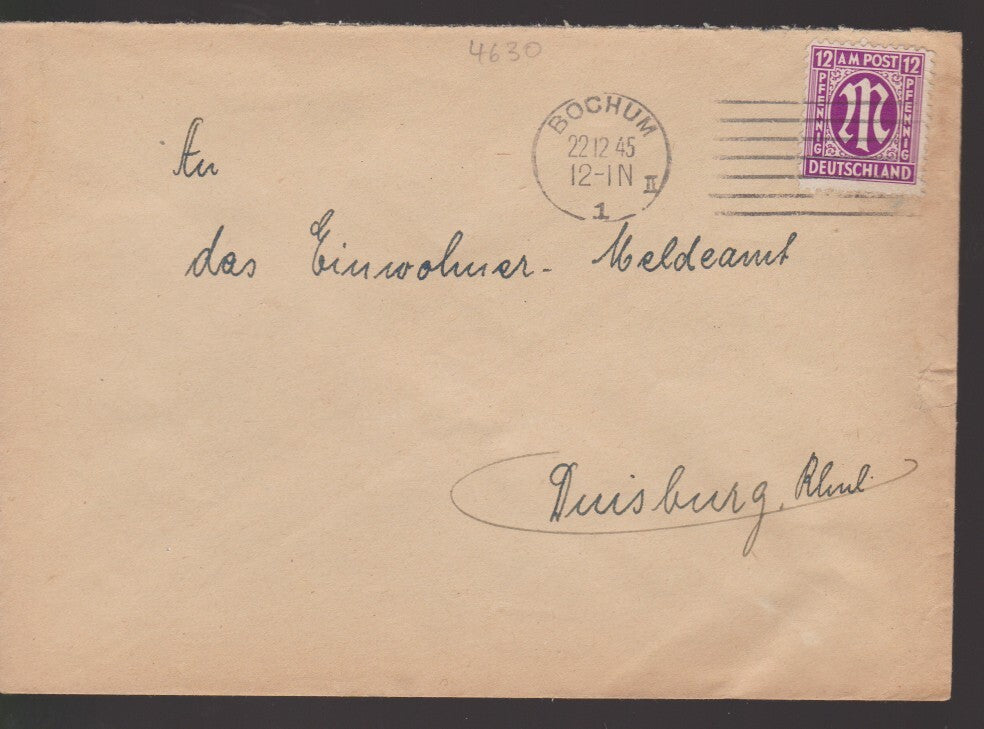 4630
12 AM POST 12
PFENNIG PFENNIG
M
DEUTSCHLAND
BOCHUM
22 12 45
12-1 N
II
1
An
das Einwohner- Meldeamt
Duisburg, Rhnl.